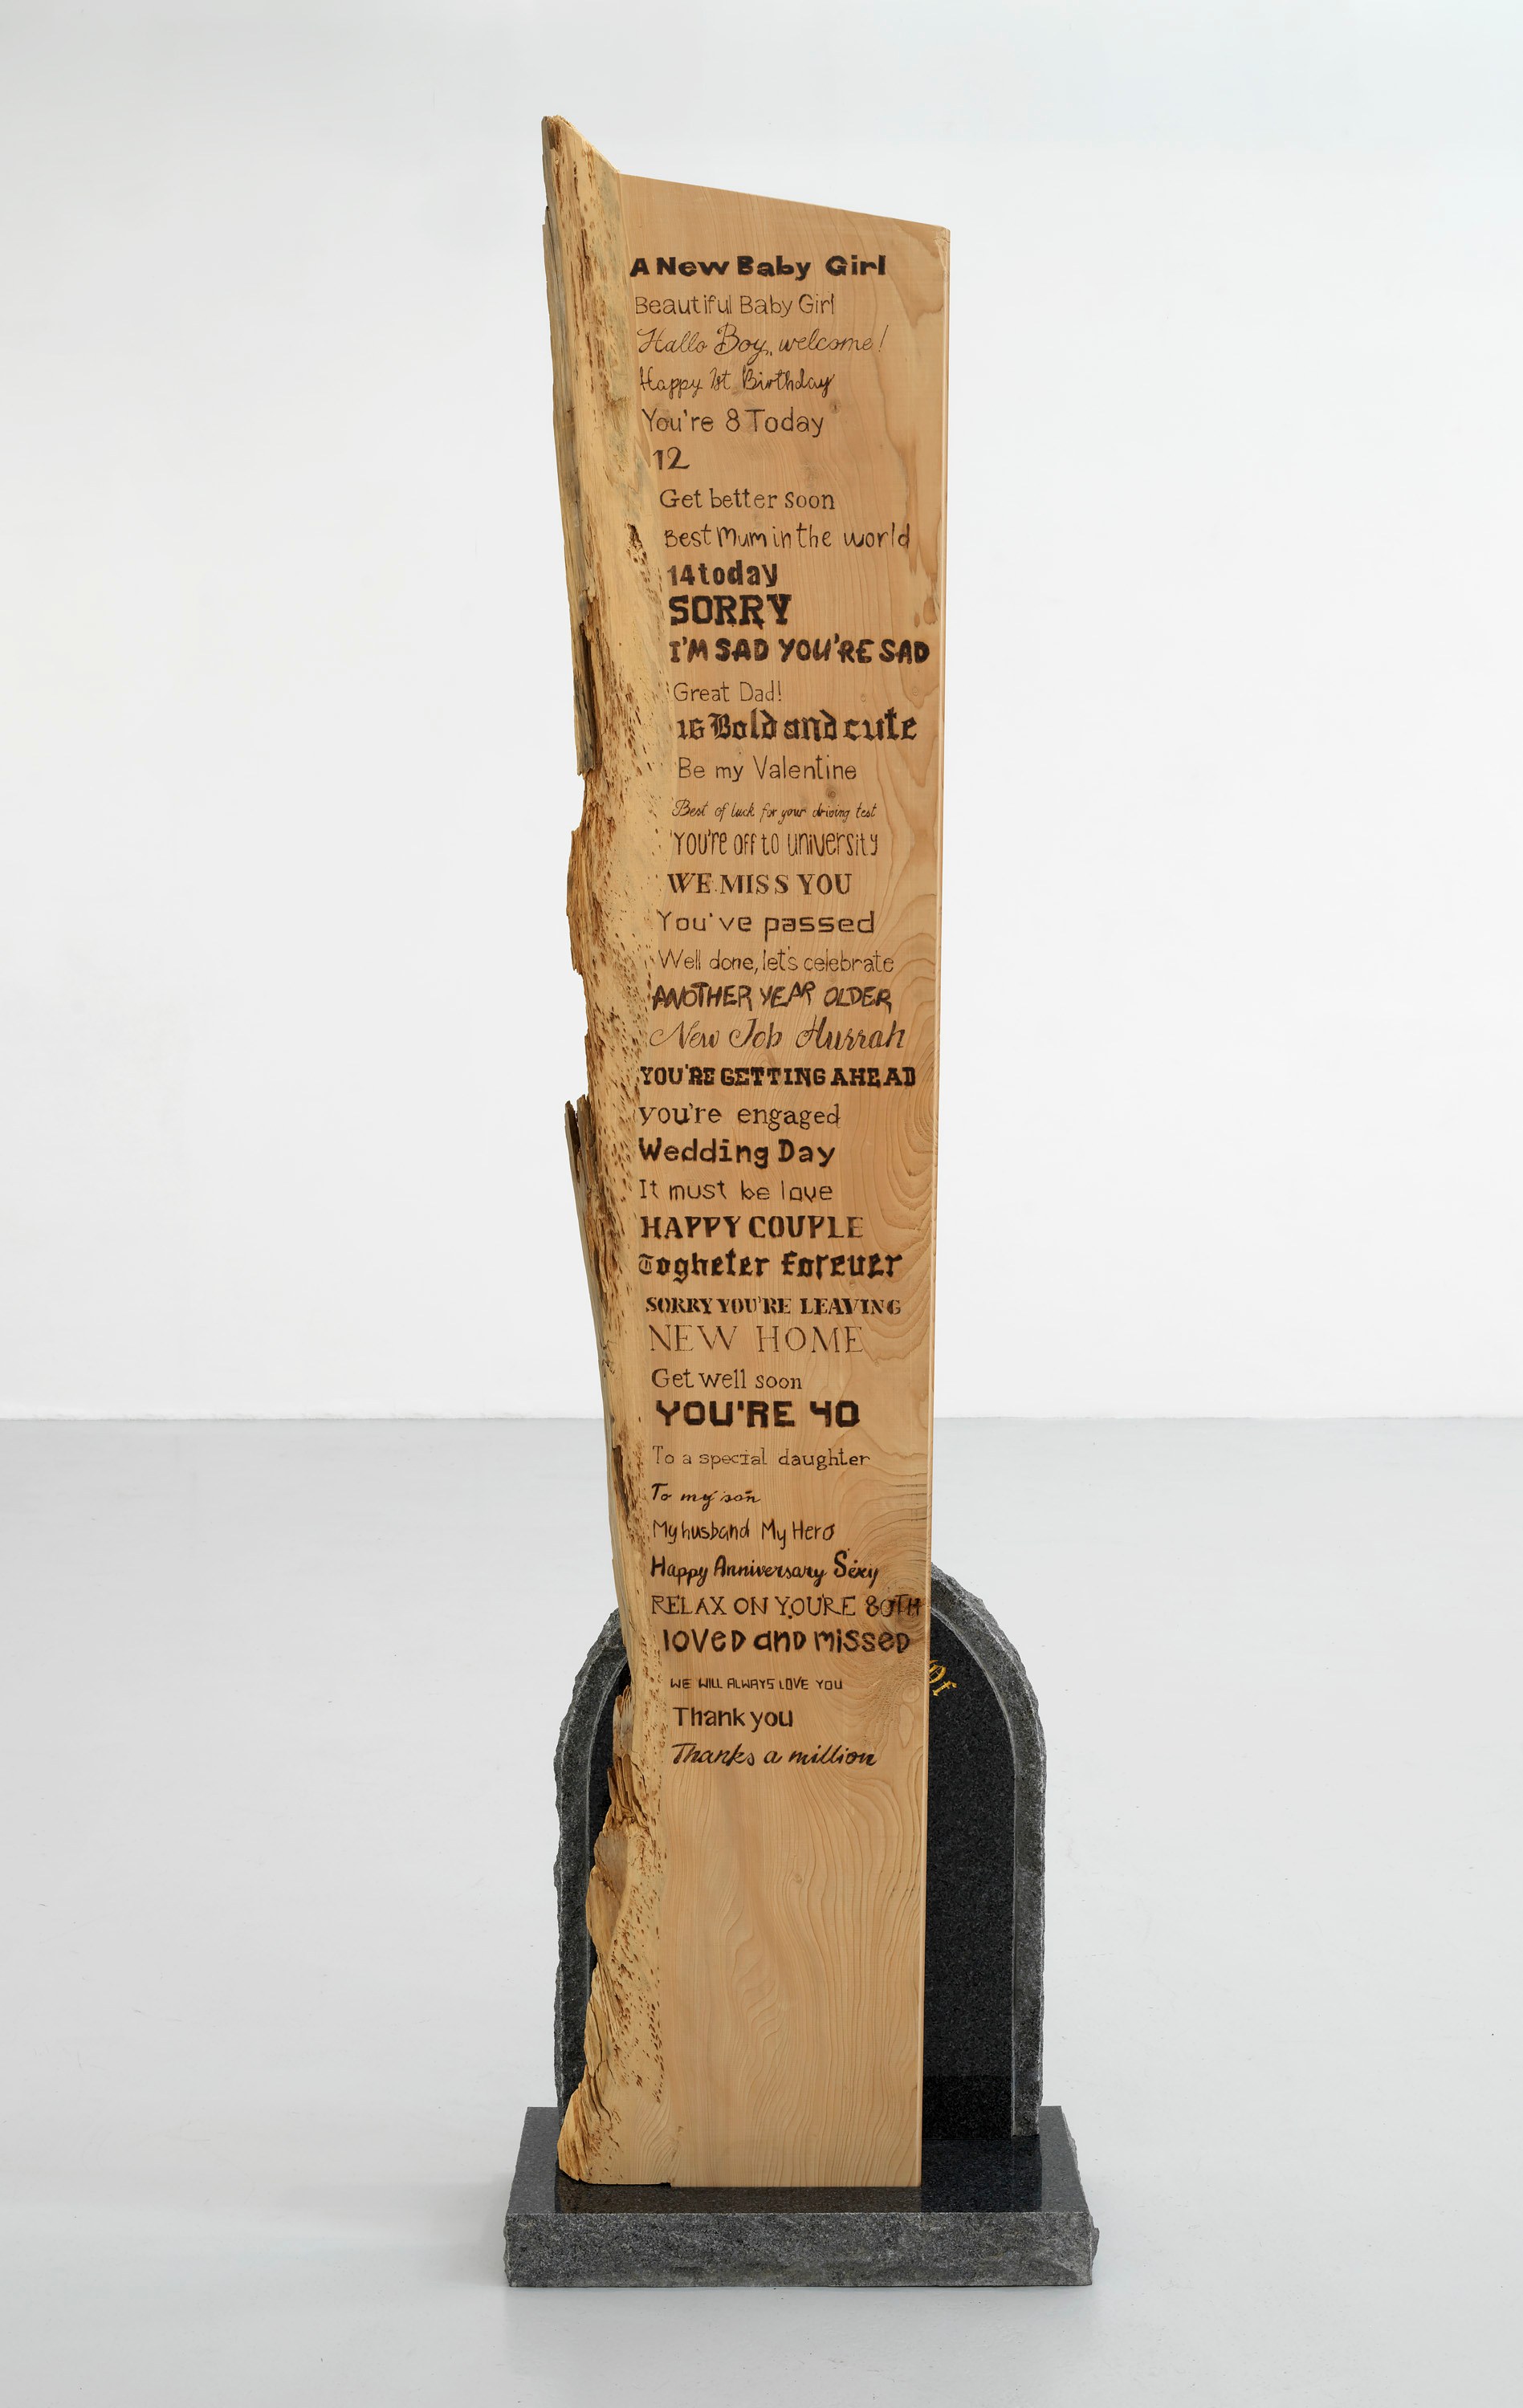 A New Baby Girl
Beautiful Baby Girl
Hallo Boy, welcome!
Happy 1st Birthday
You're 8 Today
12
Get better soon
Best Mum in the world
14 today
SORRY
I'M SAD YOU'RE SAD
Great Dad!
16 Bold and cute
Be my Valentine
Best of luck for your driving test
You're off to university
WE MISS YOU
You've passed
Well done, let's celebrate
ANOTHER YEAR OLDER
New Job Hurrah
YOU'RE GETTING AHEAD
you're engaged
Wedding Day
It must be love
HAPPY COUPLE
Togheter forever
SORRY YOU'RE LEAVING
NEW HOME
Get well soon
YOU'RE 40
To a special daughter
To my son
My husband My Hero
Happy Anniversary Sexy
RELAX ON YOURE 80TH
loved and missed
WE WILL ALWAYS LOVE YOU
Thank you
Thanks a million